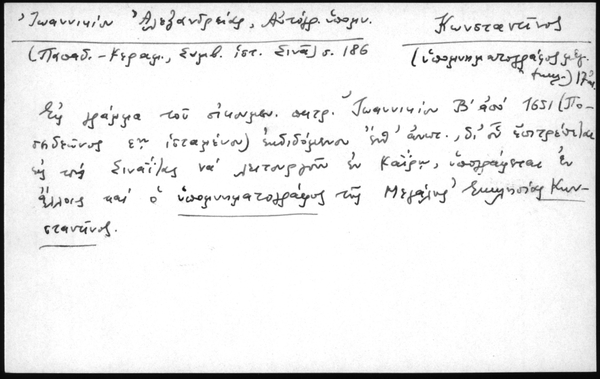 Ἰωαννικίου Ἀλεξανδρείας, Αὐτόγρ. ὑπομν.
Κωνσταντῖνος
(Παπαδ.-Κεραμ., Συμβ. ἱστ. Σινᾶ) σ. 186
(ὑπομνηματογράφος μεγ. ἐκκλ.) 17 αἰ.
Εἰς γράμμα τοῦ οἰκουμεν. πατρ. Ἰωαννικίου Β΄ ἀπό 1651 (Πο-
ἱσταμένου) ἐκδιδόμενον ἐπ' ἀνατ., δι' οὗ ἐπιτρέπεται
εἰς τούς Σιναΐτας νά λειτουργοῦν ἐν Καΐρῳ, ὑπογράφεται ἐν
ἄλλοις καί ὁ ὑπομνηματογράφος τῆς Μεγάλης Ἐκκλησίας Κων-
σταντῖνος.